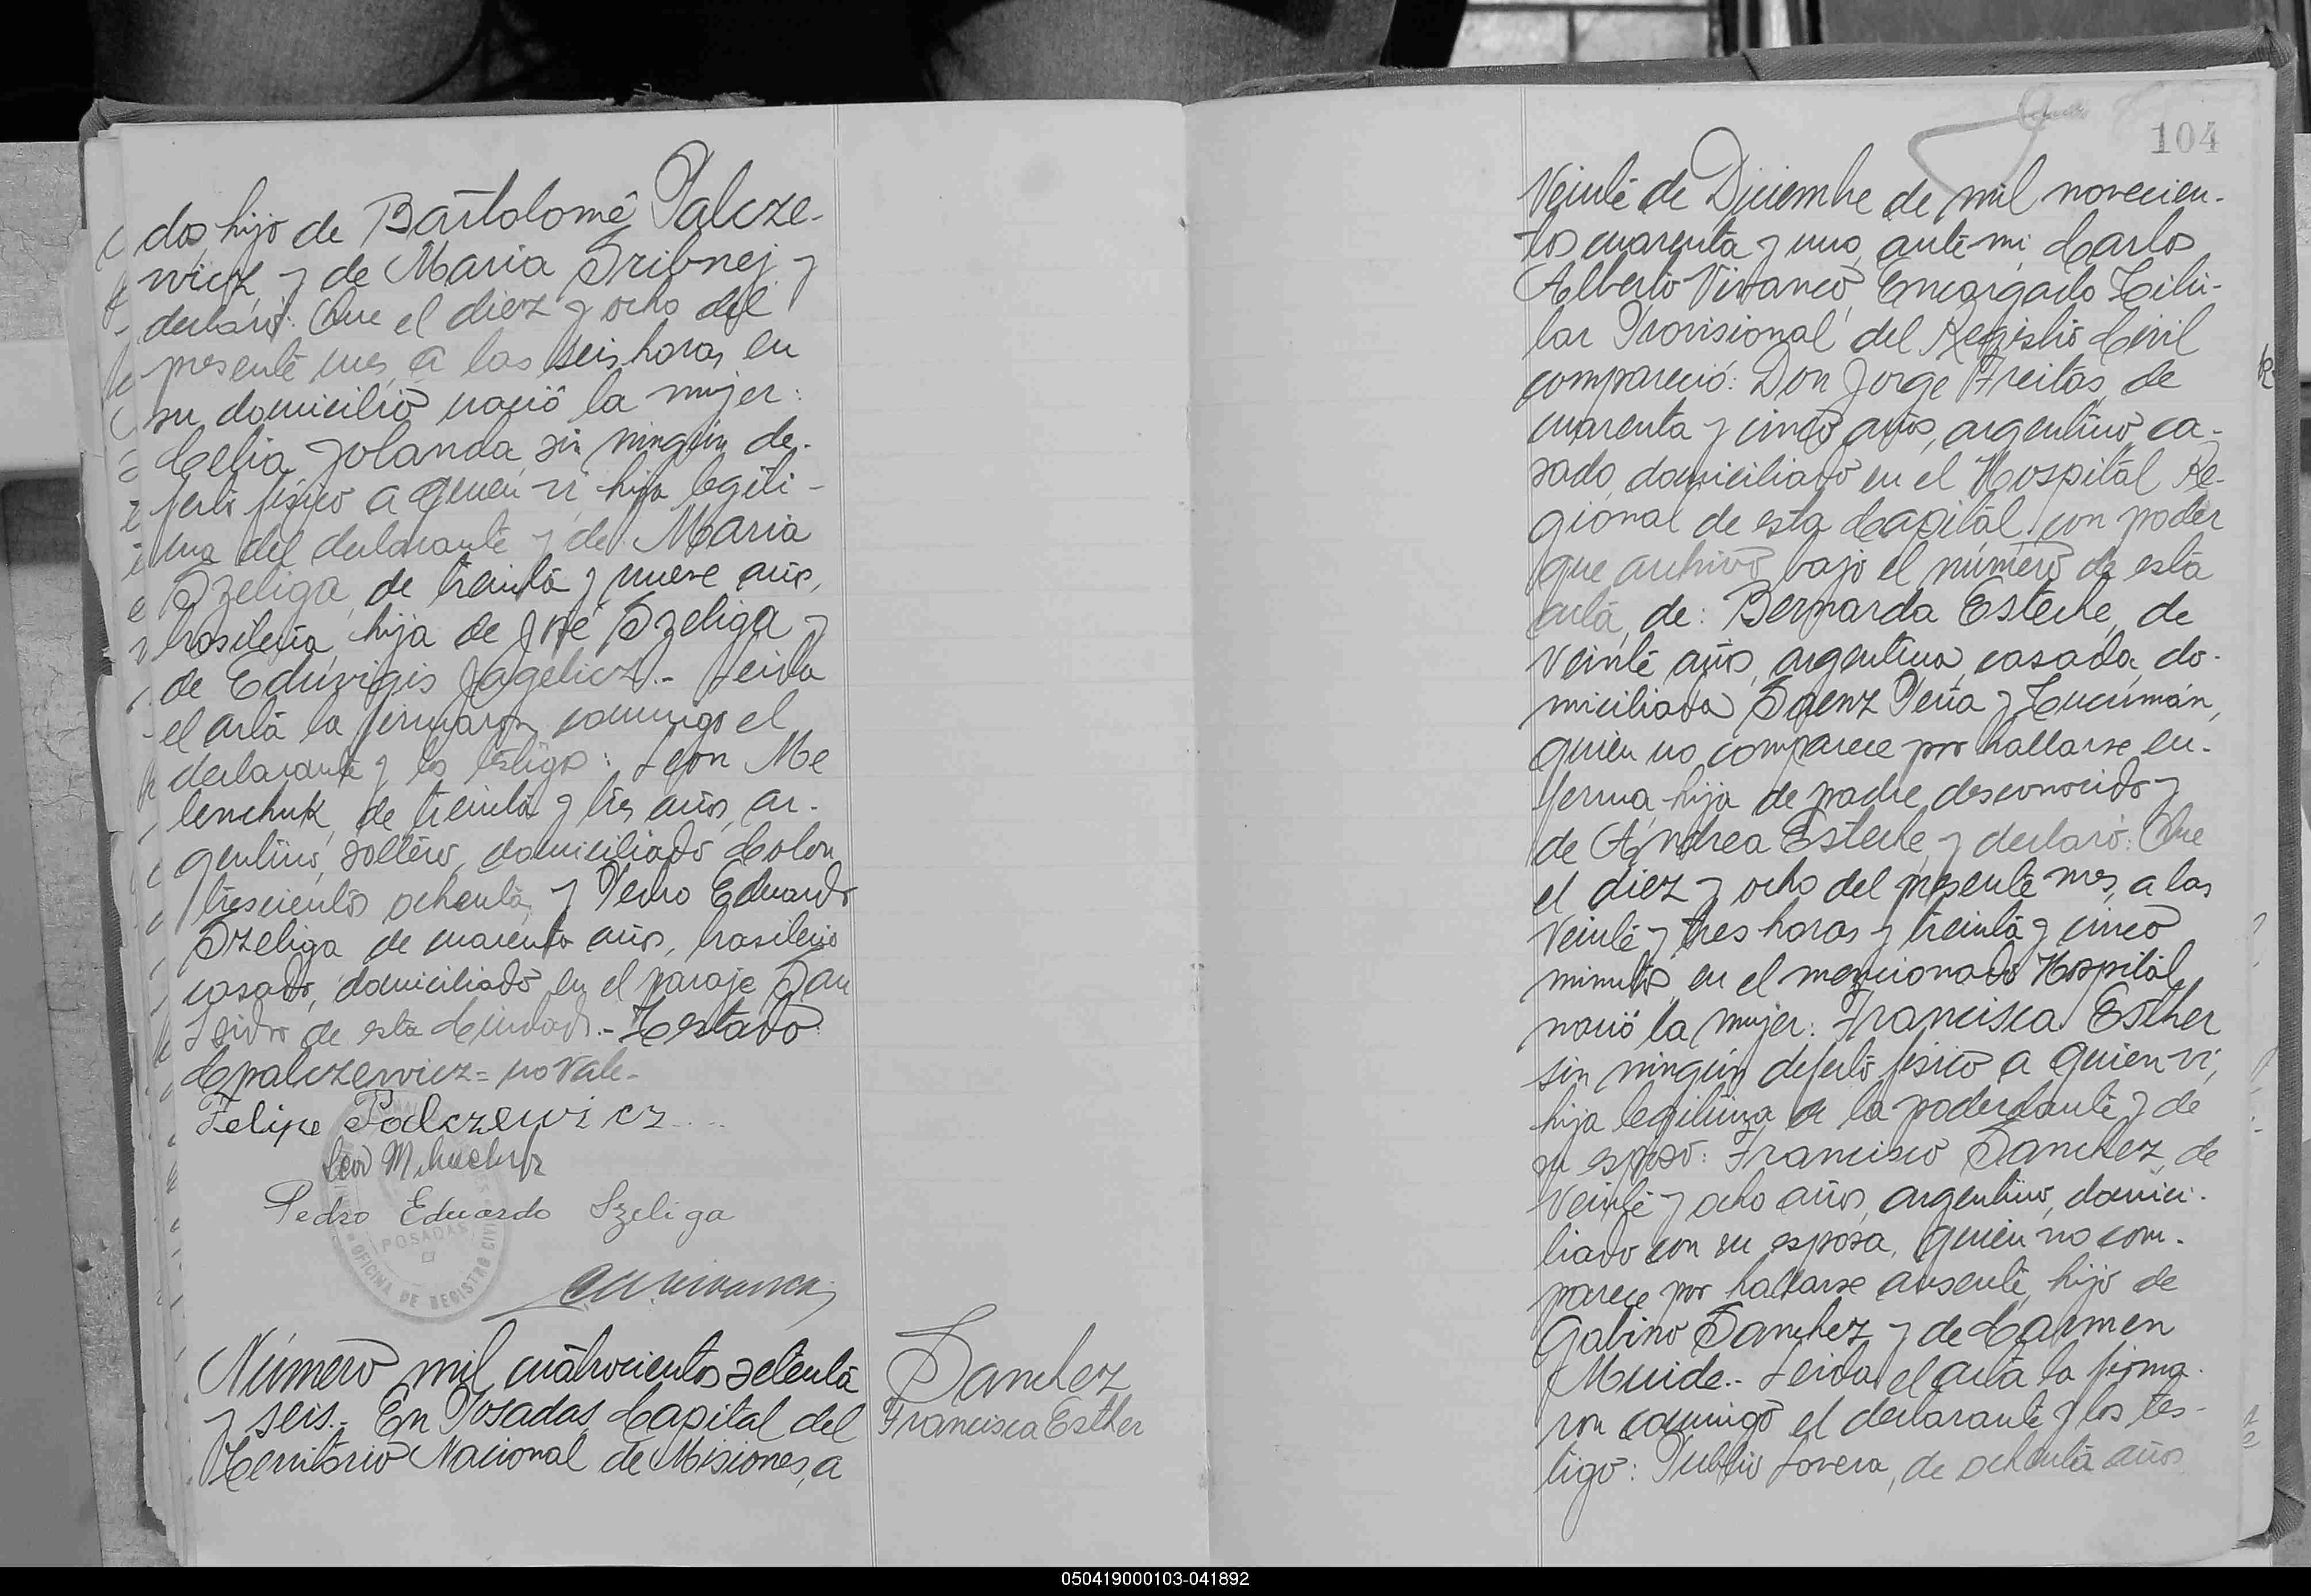 dos, hijo de Bartolomé Palcze-
wicz, y de Maria Sribnej y
declaró: Que el diez y ocho del
presente mes, a las seis horas, en
su domicilio nació la mujer:
Celia Yolanda, sin ningún de-
fecto físico a quien vi, hija legíti-
ma del declarante y de Maria
Szeliga, de treinta y nueve años,
brasileña, hija de José Szeliga y
de Eduvigis Jagelicz.- Leida
el acta la firmaron conmigo el
declarante y los testigos: Leon Me
lenchuk, de treinta y tres años, ar-
gentino, soltero, domiciliado Colon
trescientos ochenta, y Pedro Eduardo
Szeliga de cuarenta años, brasileño
casado, domiciliado en el paraje San
Isidro de esta Ciudad.- Testado:
Cpalczewicz = no vale.-
Felipe Palczewicz
Leon Melnechuk
Pedro Eduardo Szeliga
POSADAS
OFICINA DE REGISTRO CIVIL
Número mil cuatrocientos setenta
y seis.- En Posadas, Capital del
Territorio Nacional de Misiones, a
Sanchez
Francisca Esther
104
Veinte de Diciembre de mil novecien-
tos cuarenta y uno, ante mi, Carlos
Alberto Vivanco, Encargado Titu-
lar Provisional del Registro Civil
compareció: Don Jorge Freitas, de
cuarenta y cinco años, argentino, ca-
sado, domiciliado en el Hospital Re-
gional de esta Capital, con poder
que archivo bajo el número de esta
acta, de: Bernarda Esteche, de
veinte años, argentina, casada, do-
miciliada Saenz Peña y Tucumán,
quien no comparece por hallarse en-
ferma, hija de padre desconocido y
de Andrea Esteche, y declaró: Que
el diez y ocho del presente mes, a las
veinte y tres horas y treinta y cinco
minutos, en el mencionado Hospital,
nació la mujer: Francisca Esther
sin ningún defecto físico a quien vi,
hija legítima de la poderdante y de
su esposo: Francisco Sanchez, de
veinte y ocho años, argentino, domici-
liado con su esposa, quien no com-
parece por hallarse ausente, hijo de
Gabino Sanchez y de Carmen
Muide.- Leida el acta la firma-
ron conmigo el declarante y los tes-
tigos: Publio Lovera, de ochenta años
050419000103-041892